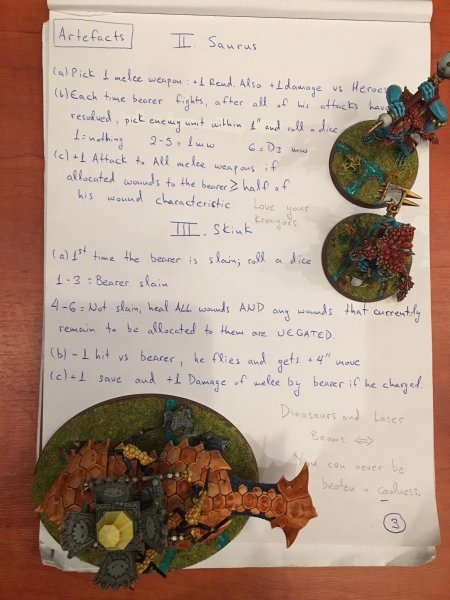 Artefacts
II. Saurus
(a) Pick 1 melee weapon: +1 Rend. Also +1 damage vs Heroes
(b) Each time bearer fights, after all of his attacks have
resolved, pick enemy unit within 1" and roll a dice
1=nothing 2-5=1mw 6=D3 mw
(c) +1 Attack to All melee weapons if
allocated wounds to the bearer ≥ half of
his wound characteristic.
Love your
Kroxigors
III. Skink
(a) 1st time the bearer is slain; roll a dice
1-3 = Bearer slain
4-6 = Not slain, heal ALL wounds AND any wounds that currently
remain to be allocated to them are NEGATED
(b) -1 hit vs bearer, he flies and gets +4" move
(c) +1 save and +1 Damage of melee by bearer if he charged.
Dinosaurs and Laser
Beams ⇔
You can never be
beaten in coolness.
3